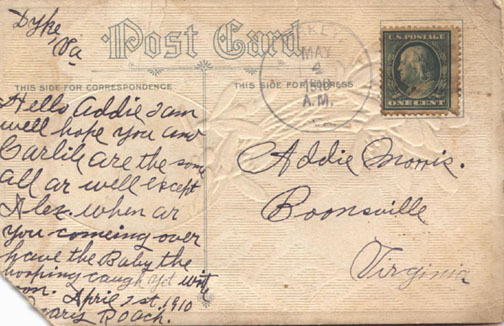 Dyke,
Va
Post Card
THIS SIDE FOR CORRESPONDENCE
THIS SIDE FOR ADDRESS
U.S. POSTAGE
ONE CENT
MAY
A.M.
Hello Addie I am
well hope you and
Carlile are the same
all ar well except
Alex. when ar
you comeing over
have the Baby the
hooping caugh yet write
oon. April 21st, 1910
Roach.
Addie Morris.
Boonsville
Virginia